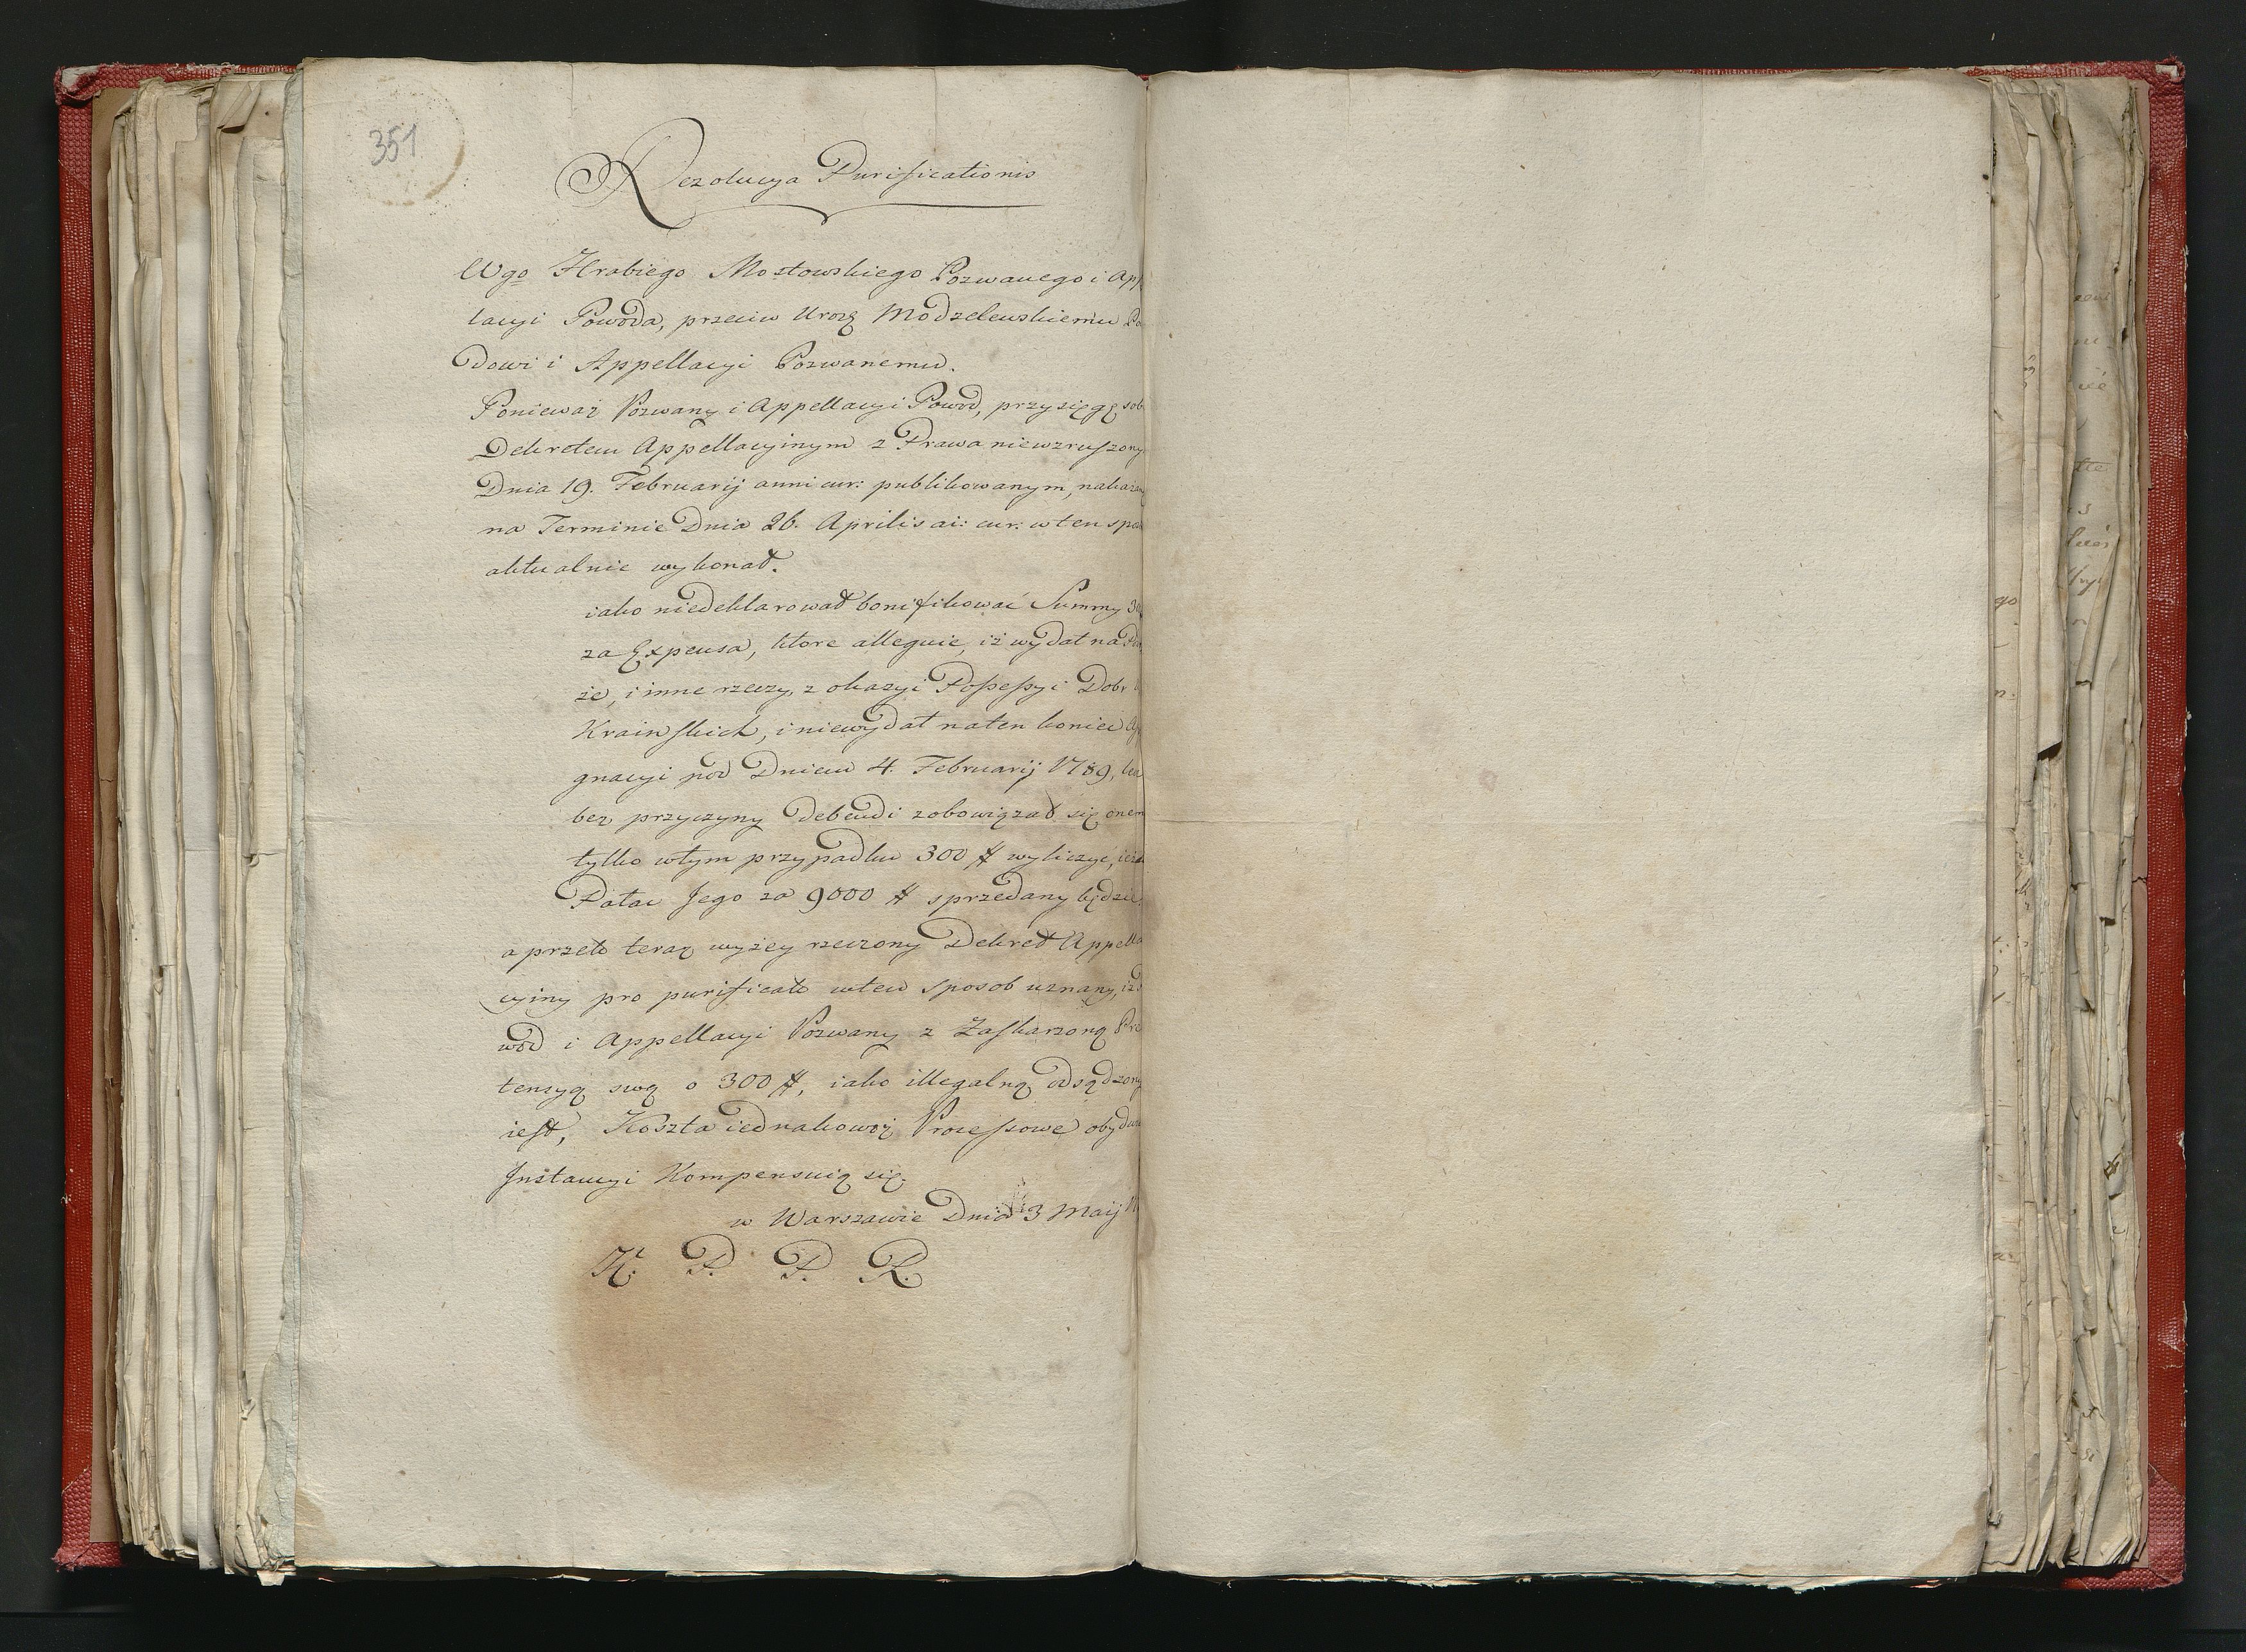 351
Rezolucya Purificationis
Wgo Hrabiego Mostowskiego Pozwanego i App
lacyi Powoda, przeciw Uroz Modzelewskiemu Po
dowi i Appellacyi Pozwanemu.
Ponieważ Pozwany i Appellacyi Powod, przysięgę sob
Dekretem Appellacyinym z Prawa niewzruszony
Dnia 19. Februarij anni cur: publikowanym, nakazan
na Terminie Dnia 26. Aprilis ai: cur: w ten spo
aktualnie wykonał.
iako niedeklarował bonifikować Summy 30
za Expensa, ktore alleguie, iż wydał na
że, i inne rzeczy, z okazyi Possessyi Dobr
Krainskich, i niewydał na ten koniec
gnacyi pod Dniem 4. Februarij 1789,
bez przyczyny debendi zobowiązał się onem
tylko wtym przypadku 300 # wyliczyć,
Pałac Jego za 9000 # sprzedany będzie.
a przeto teraz wyżey rzeczony Dekret Appella
cyiny pro purificato wten sposob uznany, iż
wod i Appellacyi Pozwany z Zaskarzoną Pre
tensyą swą o 300 #, iako illegalną odsądzony
iest, Koszta iednakowoż Processowe obydwu
Instancyi Kompensuią się.
w Warszawie Dnia 3 Maij
K. P. P. R.